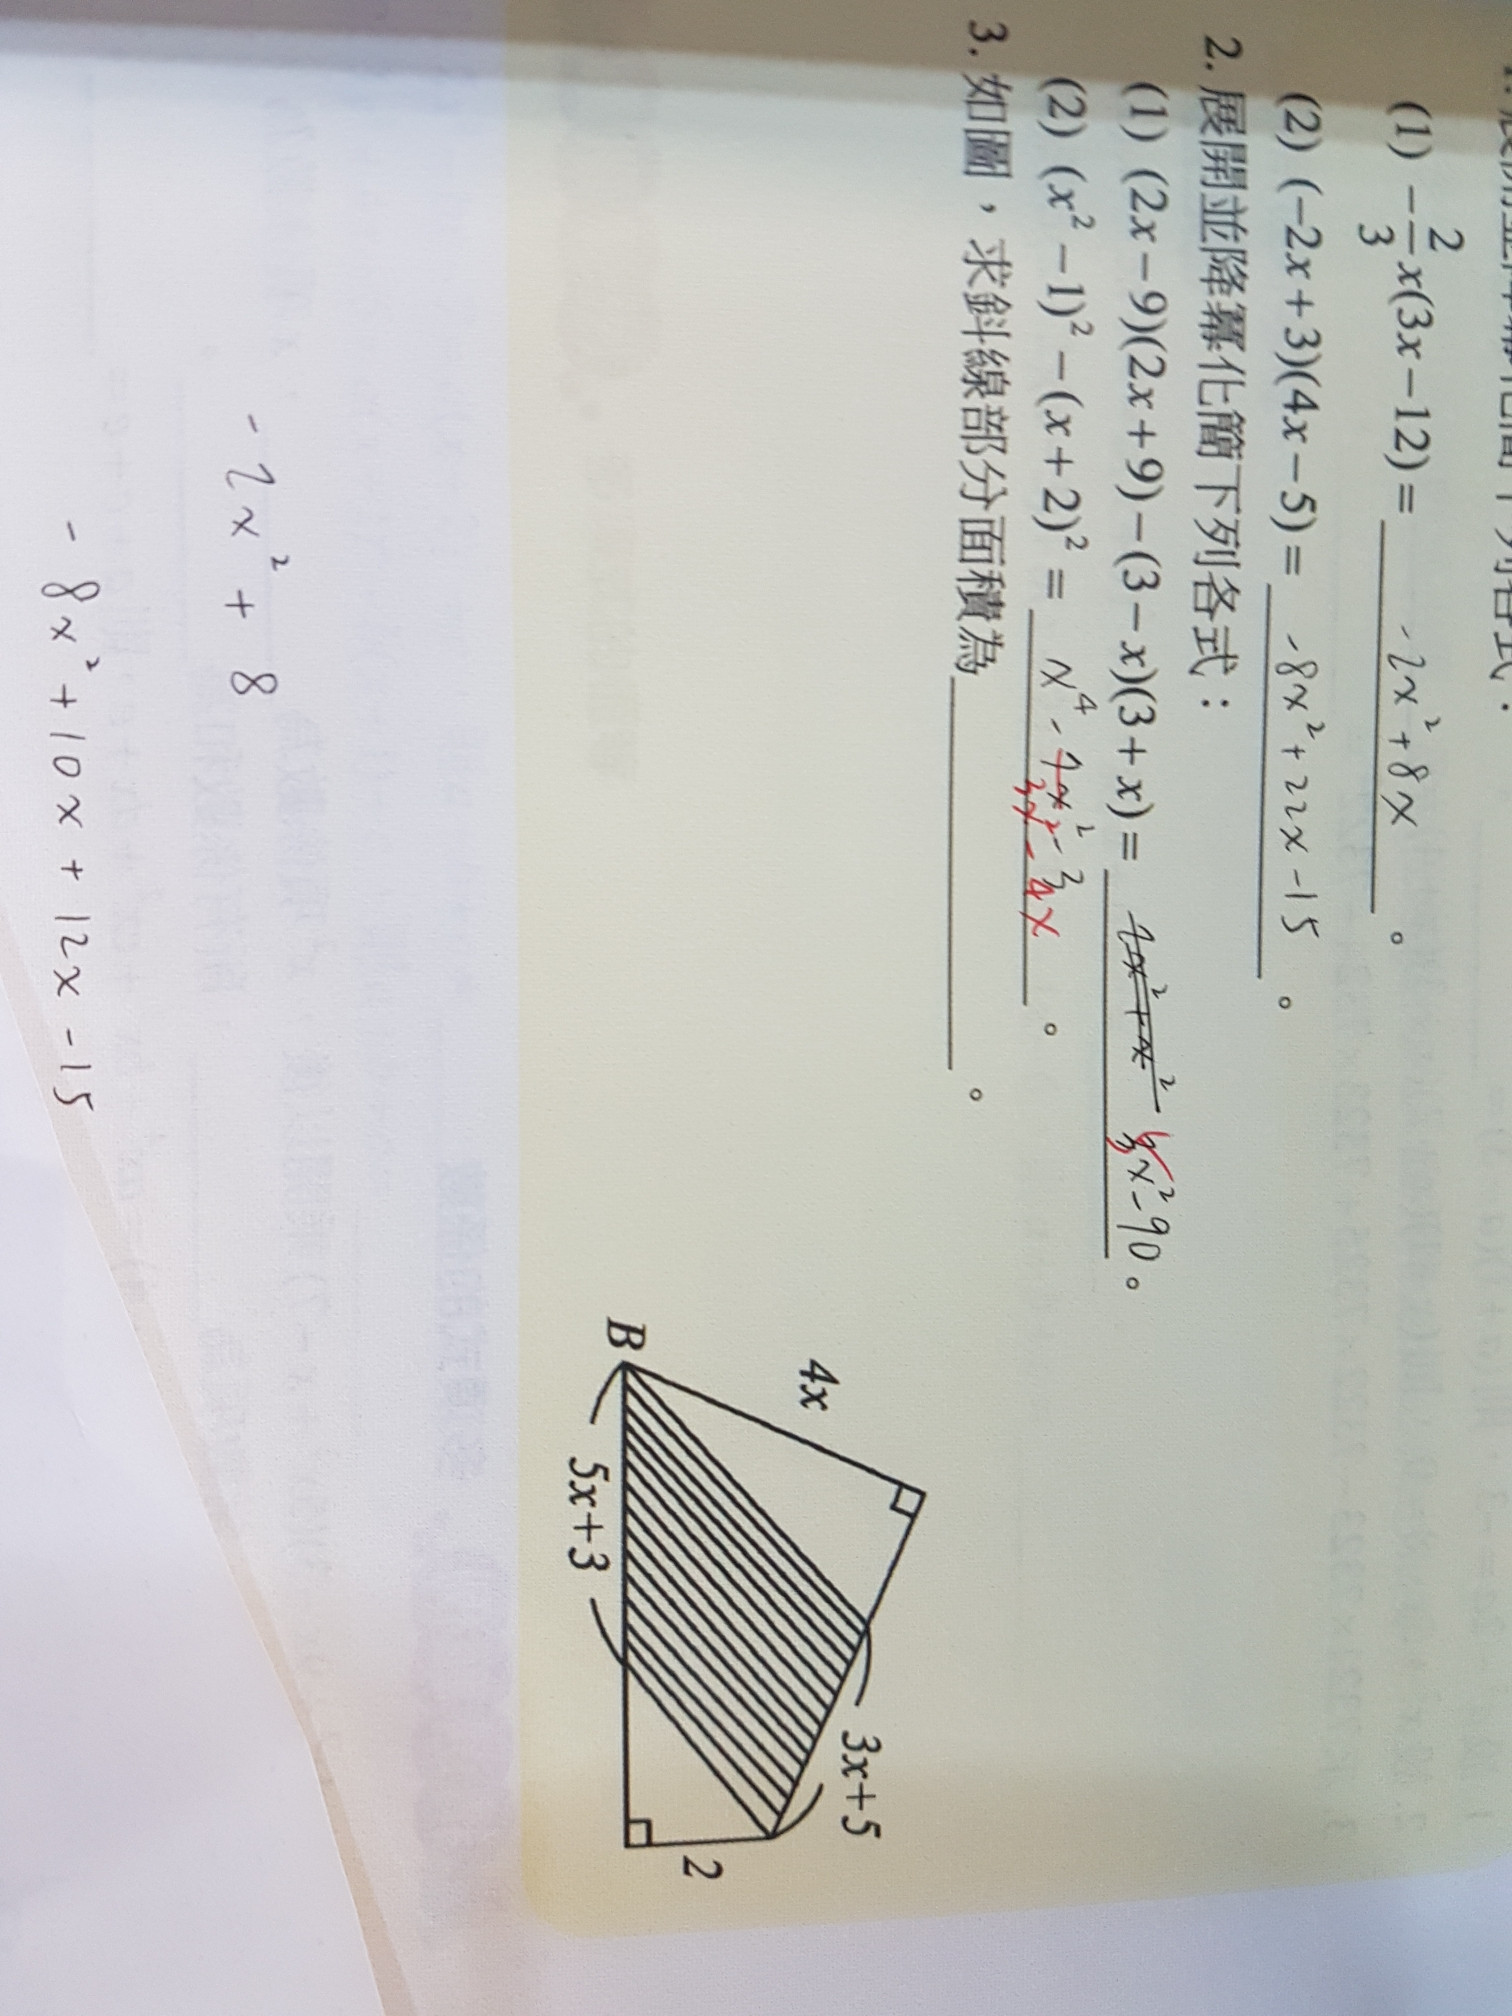 (1) −2/3x(3x−12)= -2x²+8x 。
(2) (−2x+3)(4x−5)= -8x²+22x-15 。
2. 展開並降冪化簡下列各式：
(1) (2x−9)(2x+9)−(3−x)(3+x)= 5x²-90 。
(2) (x²−1)²−(x+2)²= x⁴- 3x²-4x 。
3. 如圖，求斜線部分面積為 。
4x
3x+5
2
B
5x+3
-2x²+8
-8x²+10x+12x-15